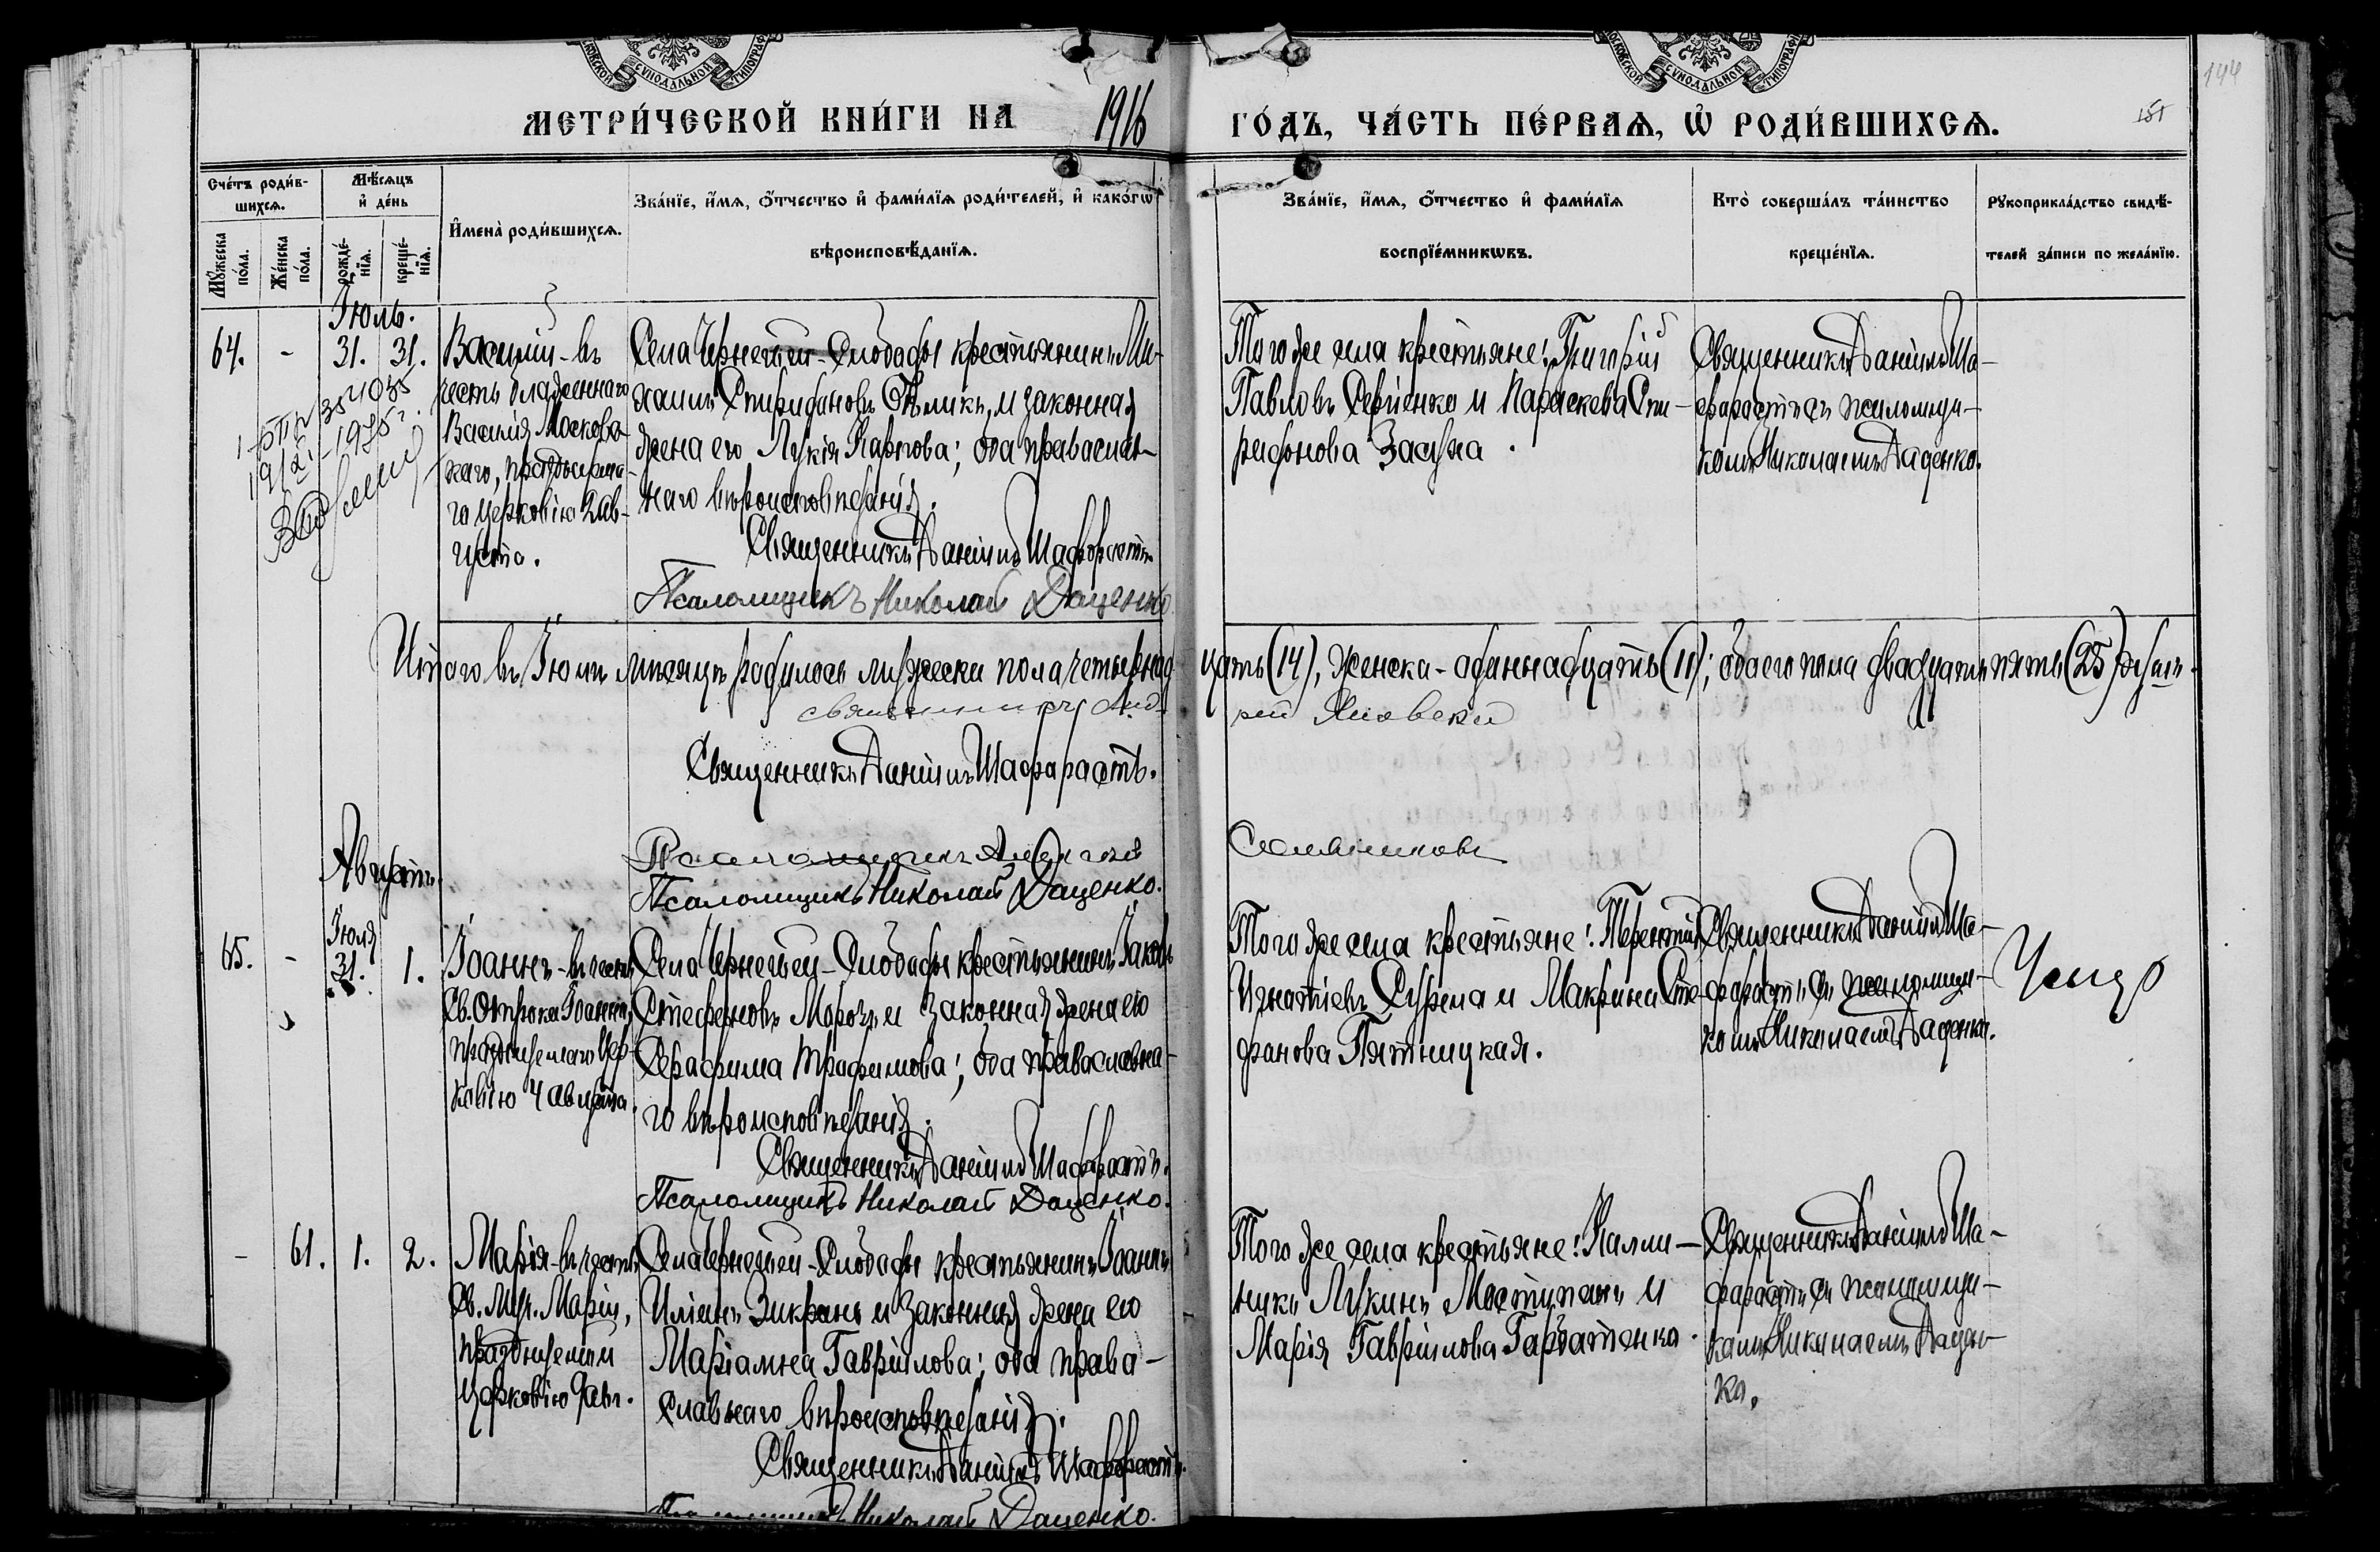 МОСКОВСКОЙ СѴНОДАЛЬНОЙ ТИПОГРАФ
МОСКОВСКОЙ СѴНОДАЛЬНОЙ ТИПОГРАФ
144
151
МЕТРИ́ЧЕСКОЙ КНИ́ГИ НА 1916 ГО́ДЪ, ЧА́СТЬ ПЕ́РВАѦ, Ѡ҆ РОДИ́ВШИХСѦ.
Сче́тъ роди́в-
шихсѧ.
Мꙋ́жеска
по́ла.
Же́нска
по́ла.
Мѣ́сѧцъ
и҆ де́нь
рожде́-
нїѧ.
креще́-
нїѧ.
И҆мена̀ роди́вшихсѧ.
Зва́нїе, и҆́мѧ, ѻ҆́тчество и҆ фами́лїѧ роди́телей, и҆ како́гѡ
вѣроисповѣ́данїѧ.
Зва́нїе, и҆́мѧ, ѻ҆́тчество и҆ фами́лїѧ
воспрїе́мникѡвъ.
Кто̀ соверша́лъ та́инство
креще́нїѧ.
Рꙋкоприкла́дство свидѣ́-
телей за́писи по жела́нїю.
Іюль.
64. - 31. 31.
Василій - въ
честь блаженнаго
Василія Московс-
каго, празднуема-
го церковію 2 ав-
густа.
Села Чернетьей-Слободы крестьянинъ Ми-
хаилъ Спиридоновъ и законная
жена его Лукія Карпова; оба православ-
наго вѣроисповѣданія.
Священникъ Даніилъ Шафорастъ
Псаломщикъ Николай Даценко.
Того же села крестьяне: Григорій
Павловъ Сергіенко и Параскева Спи-
ридонова Засуха.
Священникъ Даніилъ Ша-
форастъ съ псаломщи-
комъ Николаемъ Даценко.
1975 г.
Итого въ Іюлѣ мѣсяцѣ родилось мужеска пола четырнад-
цать (14), женска - одиннадцать (11); обоего пола двадцать пять (25) душъ.
Священникъ Даніилъ Шафарастъ.
Псаломщикъ Алексѣй
Псаломщикъ Николай Даценко.
Августъ.
65. - Іюля 31. 1.
Іоаннъ - въ честь
Св. Отрока Іоанна,
празднуемаго Цер-
ковію 4 августа.
Села Чернетьей-Слободы крестьянинъ Іаковъ
Стефановъ Морозъ и законная жена его
Серафима Трофимова; оба православна-
го вѣроисповѣданія.
Священникъ Даніилъ Шафорастъ.
Псаломщикъ Николай Даценко.
Того же села крестьяне: Терентій
Игнатіевъ Сурема и Макрина Сте-
фанова Пятницкая.
Священникъ Даніилъ Ша-
форастъ съ псаломщи-
комъ Николаемъ Даценко.
- 61. 1. 2.
Марія - въ честь
Св. Муч. Маріи,
празднуемыя
Церковію 9 авг.
Села Чернетьей-Слободы крестьянинъ Іоаннъ
и законная жена его
Маріамна Гавріилова; оба право-
славнаго вѣроисповѣданія.
Священникъ Даніилъ Шафорастъ.
Псаломщикъ Николай Даценко.
Того же села крестьяне: Калли-
никъ Лукинъ и
Марія Гавріилова Горбатенко.
Священникъ Даніилъ Ша-
форастъ съ псаломщи-
комъ Николаемъ Дацен-
ко.